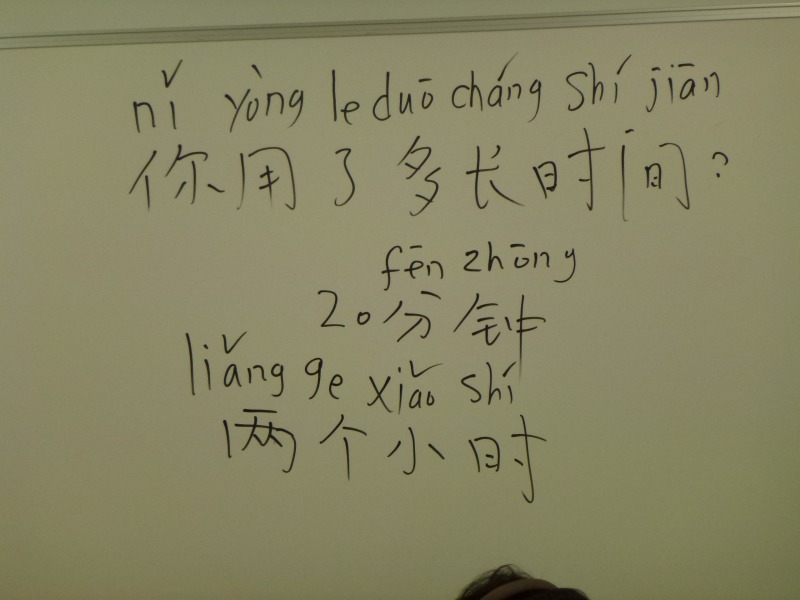 nǐ yòng le duō cháng shí jiān
你用了多长时间?
fēn zhōng
20分钟
liǎng ge xiǎo shí
两个小时